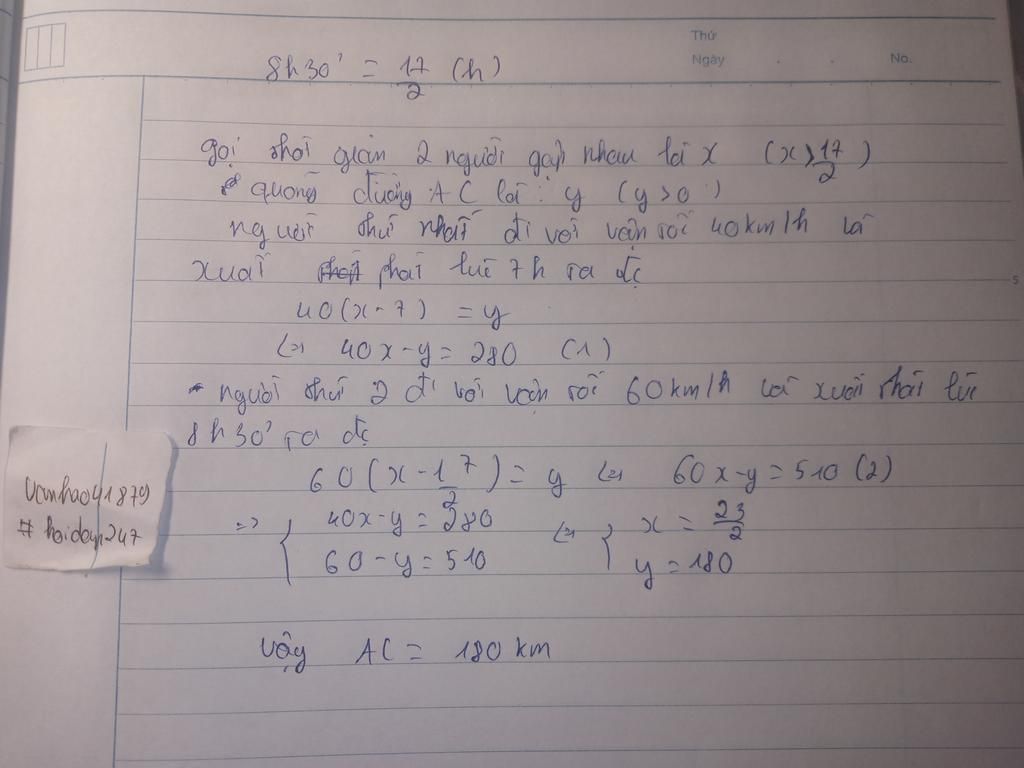 Thứ
Ngày . . No.
8h30' = 17/2 (h)
gọi thời gian 2 người gặp nhau là x (x > 17/2)
quãng đường AC là : y (y > 0)
người thứ nhất đi với vận tốc 40km/h và
xuất phát lúc 7h ta đc
40(x-7) = y
<=> 40x-y = 280 (1)
- người thứ 2 đi với vận tốc 60km/h và xuất phát lúc
8h30' ta đc
60(x-17/2) = y <=> 60x-y = 510 (2)
=> { 40x-y = 280 <=> { x = 23/2
60-y = 510 y = 180
Vậy AC = 180 km
5
vanhao41879
# hoidap247